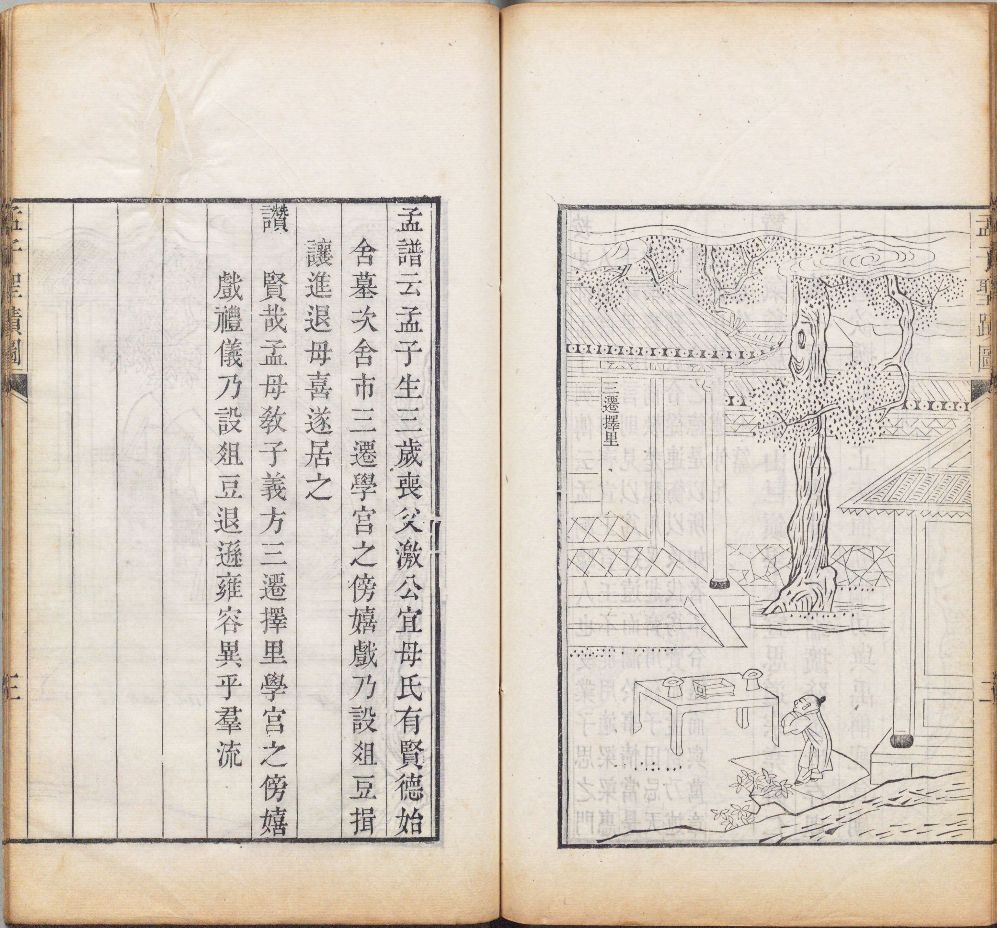 孟子聖蹟圖
三遷擇里
二
孟譜云孟子生三歲喪父激公宜母氏有賢德始
舍墓次舍市三遷學宮之傍嬉戲乃設俎豆揖
讓進退母喜遂居之
讚
賢哉孟母教子義方三遷擇里學宮之傍嬉
戲禮儀乃設俎豆退遜雍容異乎羣流
孟子聖蹟圖